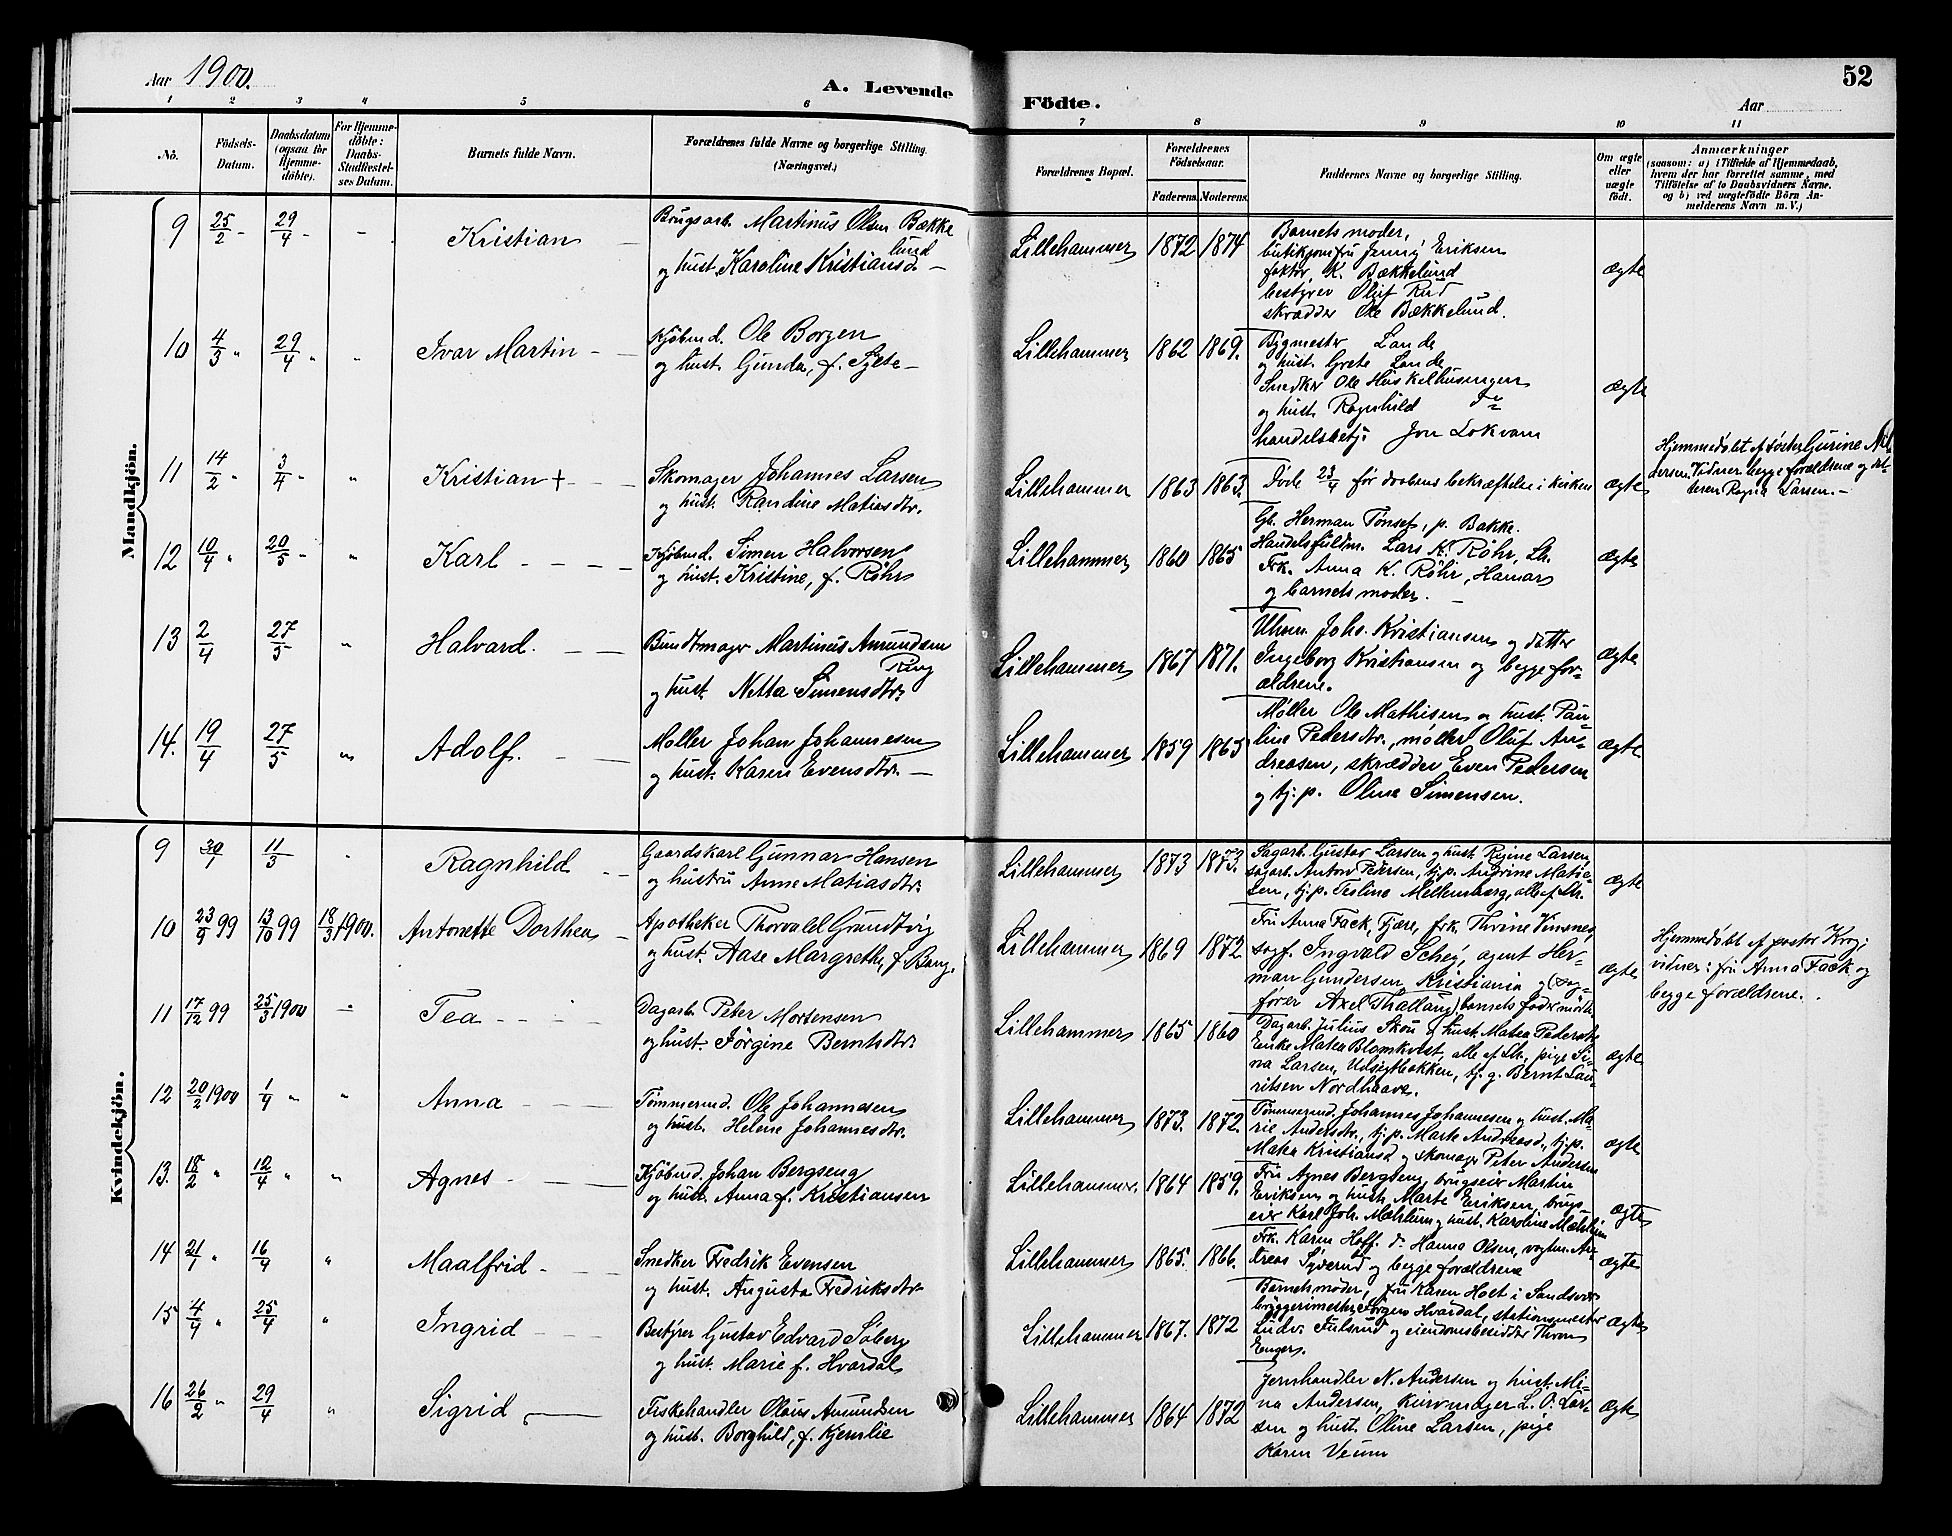 52
Aar 1900.
A. Levende Födte.
Aar
1 2 3 4 5 6 7 8 9 10 11
No.
Födsels-Datum.
Daabsdatum (ogsaa for Hjemme-döbte).
For Hjemme-döbte: Daabs-Stadfæstel-ses Datum.
Barnets fulde Navn.
Forældrenes fulde Navne og borgerlige Stilling. (Næringsvei.)
Forældrenes Bopæl.
Forældrenes Födselsaar.
Faderens. Moderens.
Faddernes Navne og borgerlige Stilling.
Om ægte eller uægte födt.
Anmærkninger
(saasom: a) i Tilfælde af Hjemmedaab,
hvem der har forrettet samme, med
Tilföielse af to Daabsvidners Navne,
og b) ved uægtefödte Börn An-
melderens Navn m. V.)
Mandkjön.
9 25/2 - 29/4 - - Kristian
Brugsarb. Martinus Olsen Bække
lund
og hust. Karoline Kristiansd. -
Lillehammer 1872 1874
Barnets moder,
butikjomfru Jenny Eriksen
faktor K. Bækkelund
bestyrer Oluf Rud
skrædder Ole Bækkelund.
ægte
10 4/3 " 29/4 " " Ivar Martin
Kjøbmd. Ole Borgen
og hust. Gunda, f. Sylte -
Lillehammer 1862 1869.
Bygmester Lande
og hust. Grete Lande
Snedker Ole Huskelhusengen
og hust. Ragnhild do
handelsbetj. Jon Lokvam
ægte
11 14/2 " 3/4 " " Kristian +
Skomager Johannes Larsen
og hust. Randine Matiasdtr.
Lillehammer 1863 1863.
Døde 23/4 før daabens bekræftelse i kirken
ægte
Hjemmedøbt af søster Gurine
Vidner begge forældrene og dat-
teren Ragna Larsen. -
12 10/4 " 20/5 " " Karl
Kjøbmd. Simen Halvorsen
og hust. Kristine, f. Røhr
Lillehammer 1860 1865
Gb. Herman Tønset, p. Bakke.
Handelsfuldm. Lars K. Røhr, Lh.
Frk. Anna K. Røhr, Hamar
og barnets moder.
ægte
13 2/4 27/5 " Halvard.
Bundtmager Martinus Amundsen
og hust. Netta Simensdtr.
Lillehammer 1867 1871.
Uhrm. Johs. Kristiansen og datter
Ingeborg Kristiansen og begge for-
ældrene.
ægte
14. 19/4 27/5 " Adolf.
Møller Johan Johannesen
og hust. Karen Evensdtr. -
Lillehammer 1859 1865
Møller Ole Mathisen og hust. Pau-
line Pedersdtr., møller Oluf An-
dreasen, skrædder Even Pedersen
og tj.p. Oline Simensen.
ægte
Kvindekjön.
9 30/1 11/3 " Ragnhild
Gaardskarl Gunnar Hansen
og hustru Anne Matiasdtr.
Lillehammer 1873 1873.
Sagarb. Gustav Larsen og hust. Regine Larsen,
sagarb. Anton Pedersen, tj.p. Andrine Matie-
sen, tj.p. Teoline Mellemberg, alle af Lh.
ægte
10 23/9 99 13/10 99 18/3 1900. Antonette Dorthea
Apotheker Thorvald Grundtvig
og hust. Aase Margrethe, f. Bang.
Lillehammer 1869 1872.
Fru Anna Fack, Fjære, frk. Thrine Vinsnes,
sagf. Ingvald Schøy, agent Her-
man Gundersen, Kristiania og (sag-
fører Axel Thallaug) barnets fader mødte
ægte
Hjemmedøbt af pastor Krog:
vidner: fru Anna Fack og
begge forældrene.
11 17/12 99 25/3 1900 - Tea
Dagarb. Peter Mortensen
og hust. Jørgine Berntsdtr.
Lillehammer 1865 1860
Dagarb. Julius Skou og hust. Matea Pedersdtr.
Enke Matea Blomkvist, alle af Lh., pige Si-
na Larsen, Udsigtbakken, tj.g. Bernt Lau-
ritsen Nordhaave.
ægte
12 20/2 1900 1/4 " " Anna
Tømmermd. Ole Johannesen
og hust. Helene Johannesdtr.
Lillehammer 1873. 1872.
Tømmermd. Johannes Johannesen og hust. Ma-
rie Andersdtr., tj.p. Marte Andreasd., tj.p.
Matea Kristiansd. og skomager Peter Andersen
ægte
13. 18/2 " 12/4 " " Agnes
Kjøbmd. Johan Bergseng
og hust. Anna f. Kristiansen
Lillehammer. 1864 1859.
Fru Agnes Bergseng, brugseier Martin
Eriksen og hust. Marte Eriksen, brugs-
eier Karl Joh. Mæhlum og hust. Karoline Mæhlum
ægte
14 21/1 " 16/4 " Maalfrid
Snedker Fredrik Evensen
og hust. Augusta Fredriksdtr.
Lillehammer 1865. 1866.
Frk. Karen Hoff. do. Hanna Olsen, vogtm. An-
dreas Syverud og begge forældrene
ægte
15 4/4 " 25/4 " Ingrid
Bestyrer Gustav Edvard Søberg
og hust. Marie f. Hvardal
Lillehammer 1867. 1872
Barnets moder, fru Karen Holt i Sandsvær
bryggerimester Jørgen Hvardal, stationsmester
Ludv. Fulsrud og eiendomsbesidder Thron
Enger.
ægte
16 26/2 " 29/4 " Sigrid
Fiskehandler Olaus Amundsen
og hust. Borghild, f. Kjemlie
Lillehammer 1864 1872
Jernhandler N. Andersen og hust. Mi-
na Andersen, kurvmager L. O. Lar-
sen og hust. Oline Larsen, pige
Karen Veum
ægte